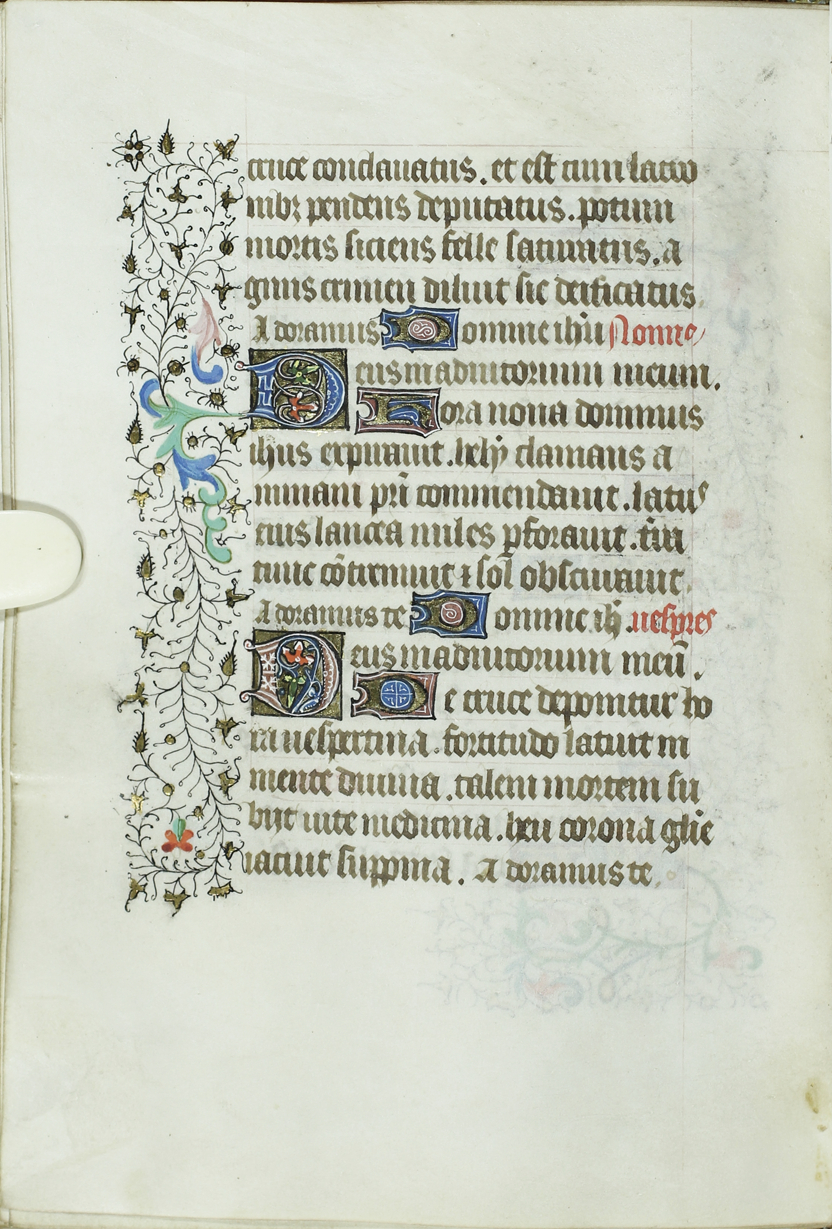 cruce conclauatus. et est cum latro
nibz pendens deputatus. potum
mortis siciens felle saturatus. a
gnus crimen diluit sic deificatus.
Adoramus Domine ihu Nonne
Deus in adiutorium meum.
Hora nona dominus
ihus expirauit. hely clamans a
nimam pri commendauit. latus
eius lancea miles pforauit. tra
tunc cōtremuit ⁊ sol obscurauit.
Adoramus te Domine ih. uespres
Deus in adiutorium meū.
De cruce deponitur ho
ra uespertina. fortitudo latuit in
mente diuina. talem mortem su
bijt uite medicina. heu corona glie
iacuit suppina. Adoramus te.